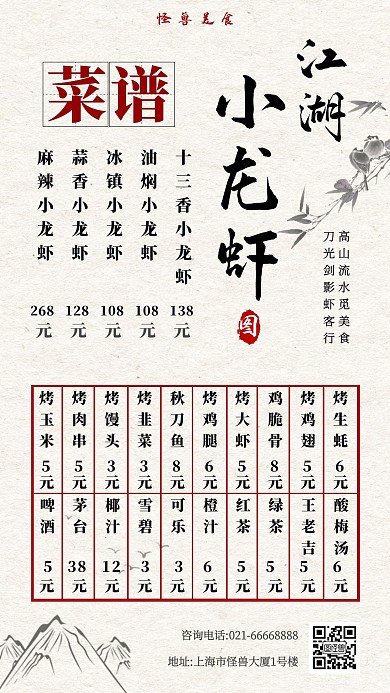 怪兽美食
江湖
小龙虾
图
高山流水觅美食
刀光剑影虾客行
菜谱
十三香小龙虾 138元
油焖小龙虾 108元
冰镇小龙虾 108元
蒜香小龙虾 128元
麻辣小龙虾 268元
烤生蚝 6元
烤鸡翅 5元
鸡脆骨 8元
烤大虾 5元
烤鸡腿 6元
秋刀鱼 8元
烤韭菜 3元
烤馒头 3元
烤肉串 5元
烤玉米 5元
酸梅汤 6元
王老吉 5元
绿茶 5元
红茶 5元
橙汁 6元
可乐 3元
雪碧 3元
椰汁 12元
茅台 38元
啤酒 5元
咨询电话:021-66668888
地址:上海市怪兽大厦1号楼